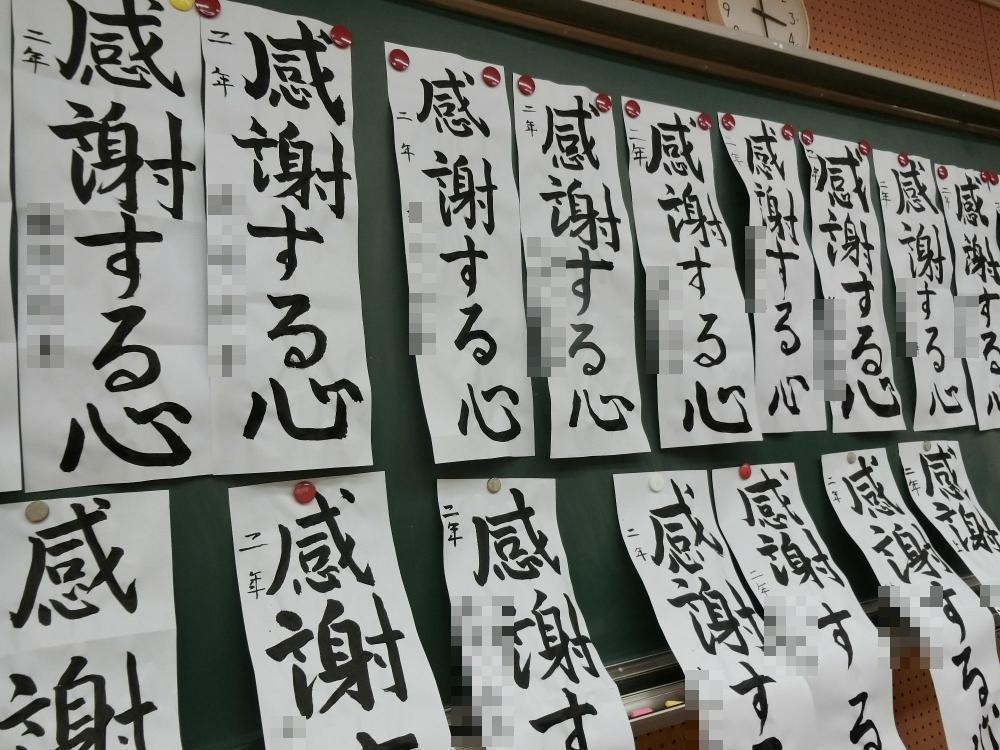 二年
感謝する心
二年
感謝する心
二年
感謝する心
二年
感謝する心
二年
感謝する心
二年
感謝する心
二年
感謝する心
二年
感謝する心
二年
感謝する
感謝
二年
感謝す
二年
感謝す
二年
感謝す
二年
感謝する
二年
感謝する心
二年
感謝
9
3
4